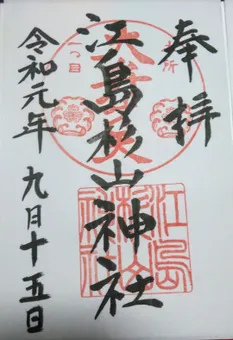 奉拝
江島杉山神社
令和元年 九月十五日
一つ目
江島
杉山
神社